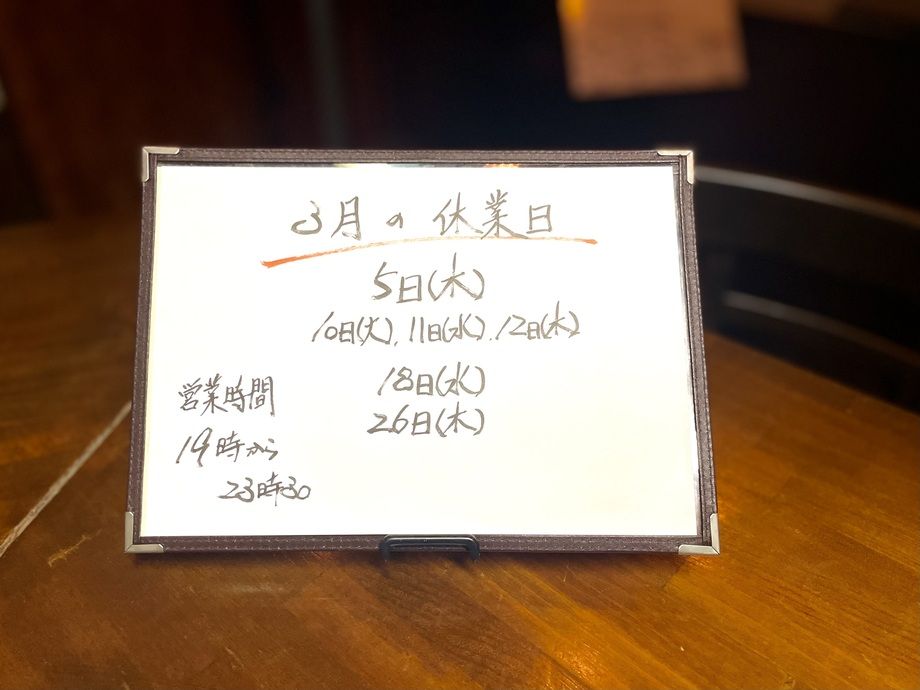 3月の休業日
5日(木)
10日(火),11日(水),12日(木)
18日(水)
26日(木)
営業時間
19時から
23時30